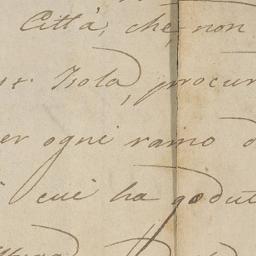 Città, che non
Isola, procur
er ogni ramo d
cui ha godut